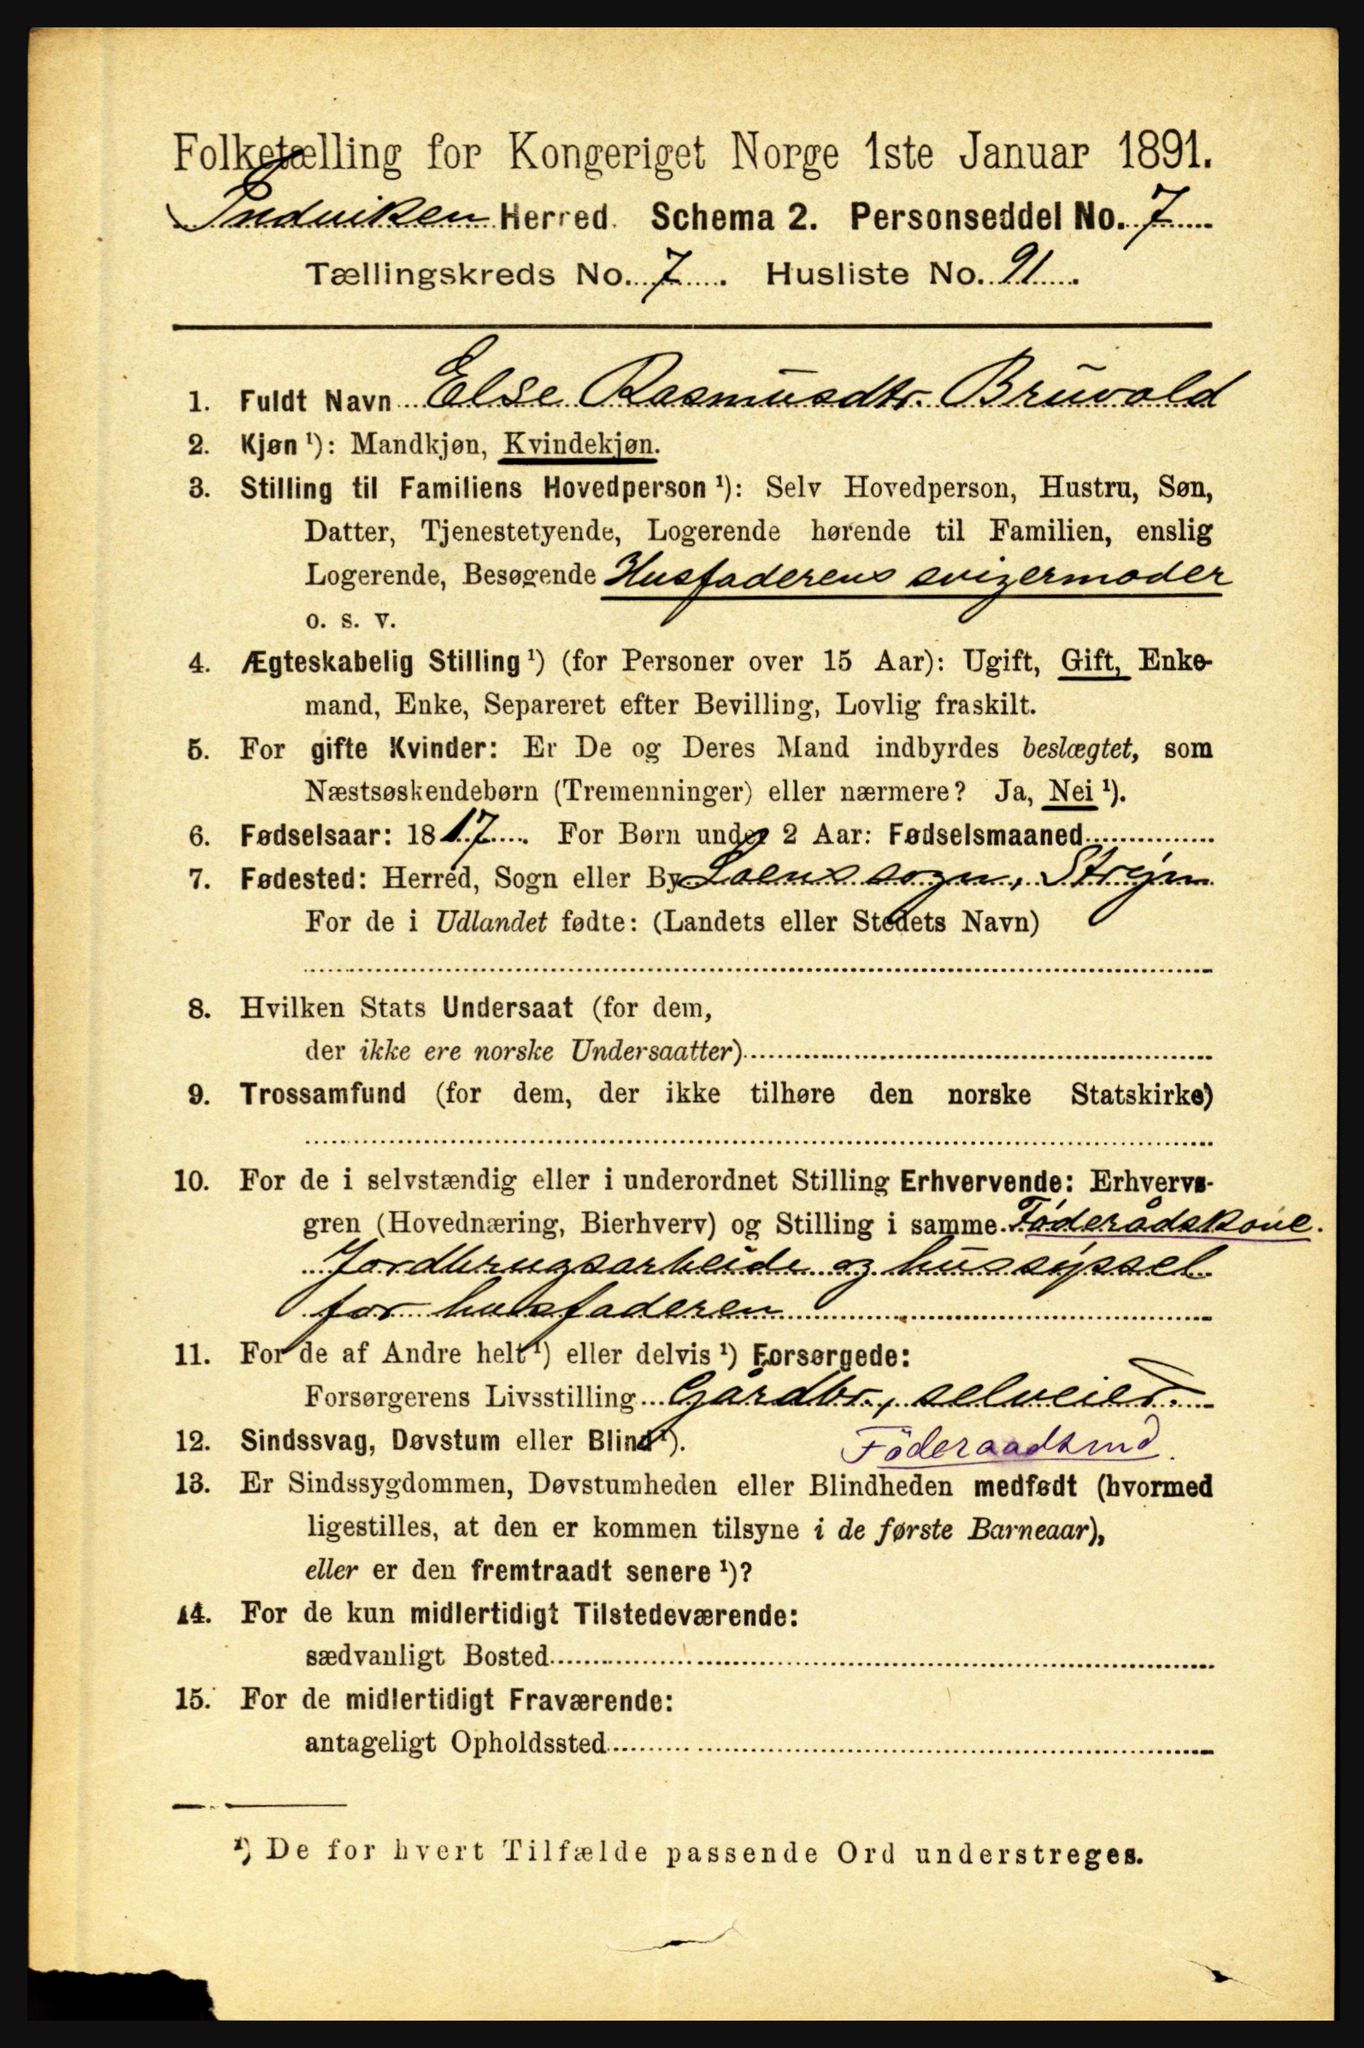 Folketælling for Kongeriget Norge 1ste Januar 1891.
Indviken Herred. Schema 2. Personseddel No. 7
Tællingskreds No. 7. Husliste No. 91.
1. Fuldt Navn Else Rasmusdtr. Bruvold
2. Kjøn ¹): Mandkjøn, Kvindekjøn.
3. Stilling til Familiens Hovedperson ¹): Selv Hovedperson, Hustru, Søn,
Datter, Tjenestetyende, Logerende hørende til Familien, enslig
Logerende, Besøgende Husfaderens svigermoder
o. s. v.
4. Ægteskabelig Stilling ¹) (for Personer over 15 Aar): Ugift, Gift, Enke-
mand, Enke, Separeret efter Bevilling, Lovlig fraskilt.
5. For gifte Kvinder: Er De og Deres Mand indbyrdes beslægtet, som
Næstsøskendebørn (Tremenninger) eller nærmere? Ja, Nei ¹).
6. Fødselsaar: 1817. For Børn under 2 Aar: Fødselsmaaned
7. Fødested: Herred, Sogn eller By Loens sogn, Stryn
For de i Udlandet fødte: (Landets eller Stedets Navn)
8. Hvilken Stats Undersaat (for dem,
der ikke ere norske Undersaatter)
9. Trossamfund (for dem, der ikke tilhøre den norske Statskirke)
10. For de i selvstændig eller i underordnet Stilling Erhvervende: Erhvervs-
gren (Hovednæring, Bierhverv) og Stilling i samme Föderådskone.
Jordbrugsarbeide og hussyssel
for husfaderen
11. For de af Andre helt ¹) eller delvis ¹) Forsørgede:
Forsørgerens Livsstilling Gårdbr., selveier.
12. Sindssvag, Døvstum eller Blind ¹). Föderaadsmd.
13. Er Sindssygdommen, Døvstumheden eller Blindheden medfødt (hvormed
ligestilles, at den er kommen tilsyne i de første Barneaar),
eller er den fremtraadt senere ¹)?
14. For de kun midlertidigt Tilstedeværende:
sædvanligt Bosted
15. For de midlertidigt Fraværende:
antageligt Opholdssted
¹) De for hvert Tilfælde passende Ord understreges.